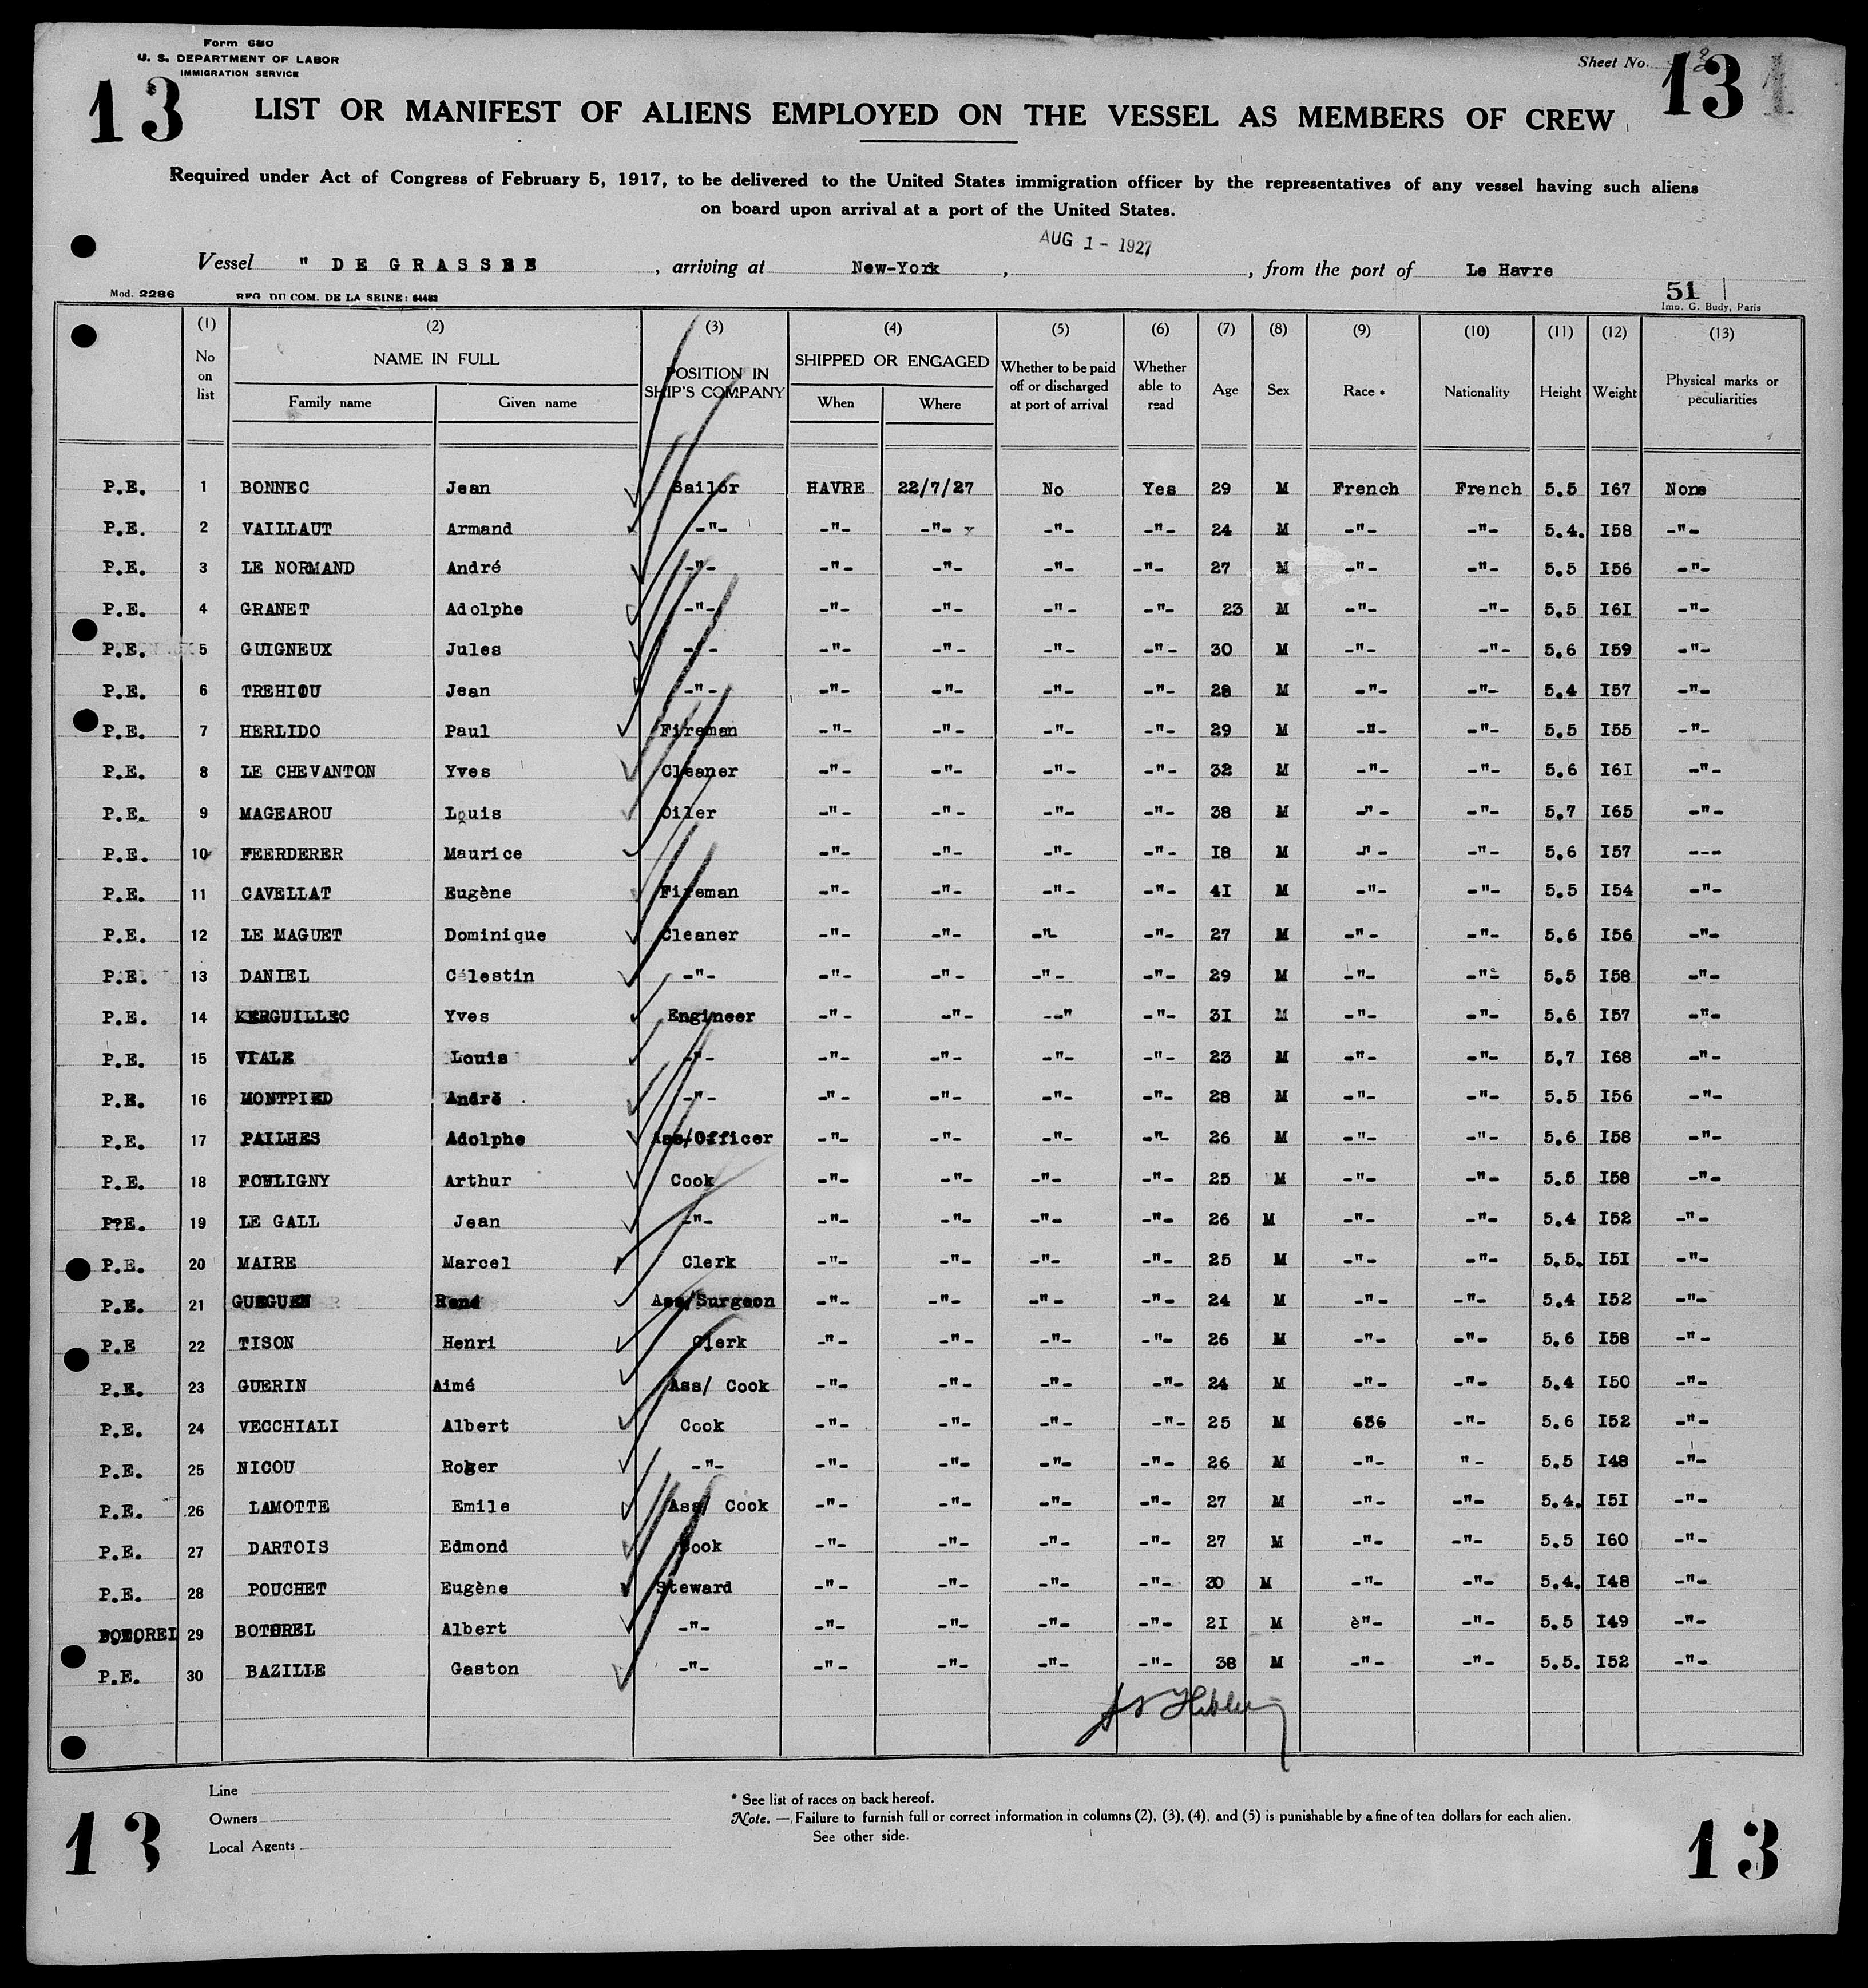 Form 680
U. S. DEPARTMENT OF LABOR
IMMIGRATION SERVICE
Sheet No.
13
13 1
LIST OR MANIFEST OF ALIENS EMPLOYED ON THE VESSEL AS MEMBERS OF CREW
Required under Act of Congress of February 5, 1917, to be delivered to the United States immigration officer by the representatives of any vessel having such aliens
on board upon arrival at a port of the United States.
AUG 1 - 1927
Vessel " DE GRASSE , arriving at New-York , , from the port of Le Havre
Mod. 2286 REG. DU COM. DE LA SEINE: 64483 51
Imp. G. Budy, Paris
(1) (2) (3) (4) (5) (6) (7) (8) (9) (10) (11) (12) (13)
No on list NAME IN FULL POSITION IN SHIP'S COMPANY SHIPPED OR ENGAGED Whether to be paid off or discharged at port of arrival Whether able to read Age Sex Race * Nationality Height Weight Physical marks or peculiarities
Family name Given name When Where
P.E. 1 BONNEC Jean Sailor HAVRE 22/7/27 No Yes 29 M French French 5.5 I67 None
P.E. 2 VAILLAUT Armand -"- -"- -"- -"- -"- 24 M -"- -"- 5.4. I58 -"-
P.E. 3 LE NORMAND André -"- -"- -"- -"- -"- 27 M -"- -"- 5.5 I56 -"-
P.E. 4 GRANET Adolphe -"- -"- -"- -"- -"- 23 M -"- -"- 5.5 I6I -"-
P.E. 5 GUIGNEUX Jules -"- -"- -"- -"- -"- 30 M -"- -"- 5.6 I59 -"-
P.E. 6 TREHIOU Jean -"- -"- -"- -"- -"- 28 M -"- -"- 5.4 I57 -"-
P.E. 7 HERLIDO Paul Fireman -"- -"- -"- -"- 29 M -"- -"- 5.5 I55 -"-
P.E. 8 LE CHEVANTON Yves Cleaner -"- -"- -"- -"- 32 M -"- -"- 5.6 I6I -"-
P.E. 9 MAGEAROU Louis Oiler -"- -"- -"- -"- 38 M -"- -"- 5.7 I65 -"-
P.E. 10 FEERDERER Maurice -"- -"- -"- -"- I8 M -"- -"- 5.6 I57 ---
P.E. 11 CAVELLAT Eugène Fireman -"- -"- -"- -"- 4I M -"- -"- 5.5 I54 -"-
P.E. 12 LE MAGUET Dominique Cleaner -"- -"- -"- -"- 27 M -"- -"- 5.6 I56 -"-
P.E. 13 DANIEL Célestin -"- -"- -"- -"- -"- 29 M -"- -"- 5.5 I58 -"-
P.E. 14 KERGUILLEC Yves Engineer -"- -"- --" -"- 3I M -"- -"- 5.6 I57 -"-
P.E. 15 VIALE Louis -"- -"- -"- -"- -"- 23 M -"- -"- 5.7 I68 -"-
P.E. 16 MONTPIED André -"- -"- -"- -"- -"- 28 M -"- -"- 5.5 I56 -"-
P.E. 17 PAILHES Adolphe Ass/Officer -"- -"- -"- -"- 26 M -"- -"- 5.6 I58 -"-
P.E. 18 FOULIGNY Arthur Cook -"- -"- -"- -"- 25 M -"- -"- 5.5 I58 -"-
P?E. 19 LE GALL Jean -"- -"- -"- -"- -"- 26 M -"- -"- 5.4 I52 -"-
P.E. 20 MAIRE Marcel Clerk -"- -"- -"- -"- 25 M -"- -"- 5.5. I5I -"-
P.E. 21 GUEGUEN René Ass/Surgeon -"- -"- -"- -"- 24 M -"- -"- 5.4 I52 -"-
P.E 22 TISON Henri Clerk -"- -"- -"- -"- 26 M -"- -"- 5.6 I58 -"-
P.E. 23 GUERIN Aimé Ass/ Cook -"- -"- -"- -"- 24 M -"- -"- 5.4 I50 -"-
P.E. 24 VECCHIALI Albert Cook -"- -"- -"- -"- 25 M -"- 5.6 I52 -"-
P.E. 25 NICOU Roger -"- -"- -"- -"- -"- 26 M -"- "- 5.5 I48 -"-
P.E. 26 LAMOTTE Emile Ass/ Cook -"- -"- -"- -"- 27 M -"- -"- 5.4. I5I -"-
P.E. 27 DARTOIS Edmond Cook -"- -"- -"- -"- 27 M -"- -"- 5.5 I60 -"-
P.E. 28 POUCHET Eugène Steward -"- -"- -"- -"- 30 M -"- -"- 5.4. I48 -"-
29 BOTOREL Albert -"- -"- -"- -"- -"- 2I M è"- -"- 5.5 I49 -"-
P.E. 30 BAZILLE Gaston -"- -"- -"- -"- -"- 38 M -"- -"- 5.5. I52 -"-
Line
Owners
Local Agents
* See list of races on back hereof.
Note. — Failure to furnish full or correct information in columns (2), (3), (4), and (5) is punishable by a fine of ten dollars for each alien.
See other side.
13
13